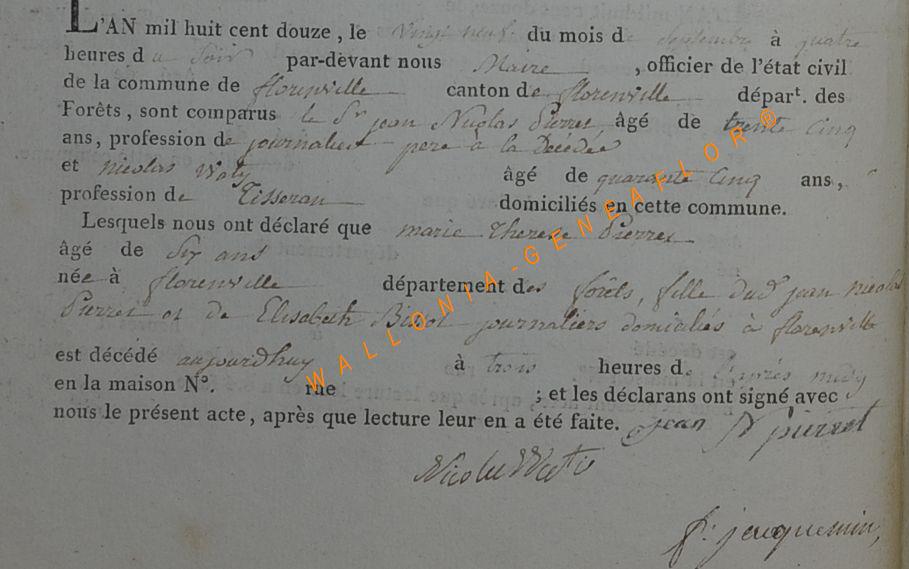 L'AN mil huit cent douze, le Vingt neuf du mois de Septembre à quatre
heures du Soir par-devant nous Maire, officier de l'état civil
de la commune de florenville canton de florenville départ. des
Forêts, sont comparus le Sr jean Nicolas Pierret, âgé de trente Cinq
ans, profession de journalier pere a la Decedee
et nicolas Waty âgé de quarante Cinq ans,
profession de Tisseran domiciliés en cette commune.
Lesquels nous ont déclaré que marie Therese Pierret
âgé de Six ans
née à florenville département des forêts, fille dud jean nicolas
Pierret et de Elisabeth journaliers domiciliés à florenville
est décédé aujourdhuy à trois heures de l'après midy
en la maison N°. rue ; et les déclarans ont signé avec
nous le présent acte, après que lecture leur en a été faite. jean N pierret
Nicolas
jacquemin
WALLONIA-GENEAFLOR®